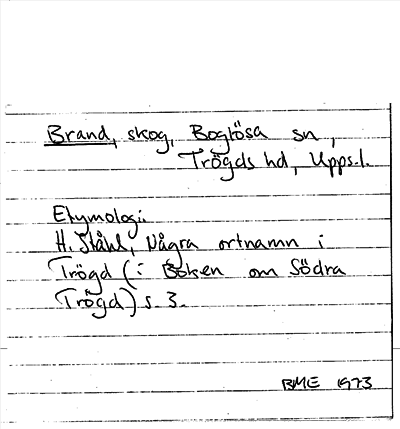 Brand, skog, Boglösa sn,
Trögds hd, Upps.l.
Etymologi:
H. Ståhl, Några ortnamn i
Trögd (i Boken om Södra
Trögd) s. 3.
BME 1973